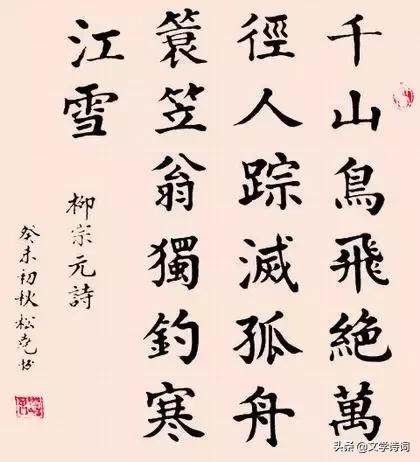 千山鳥飛絶萬
徑人踪滅孤舟
簑笠翁獨釣寒
江雪
柳宗元詩
癸未初秋松
头条 @文学诗词